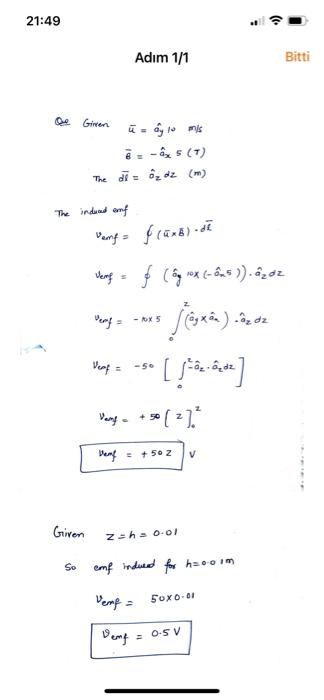 21:49
Adım 1/1
Bitti
Given ū = ây 10 m/s
B̄ = - âx 5 (T)
The dl̄ = âz dz (m)
The induced emf
Vemf = ∮ (ū×B̄) · dl̄
Vemf = ∮ (ây 10 × (-âx 5)) · âz dz
Vemf = - 10×5 ∫₀ᶻ (ây × âx) · âz dz
Vemf = -50 [ ∫₀ᶻ -âz · âz dz ]
Vemf = + 50 [ z ]₀ᶻ
Vemf = + 50 z V
Given z = h = 0.01
So emf induced for h=0.01m
Vemf = 50×0.01
Vemf = 0.5 V